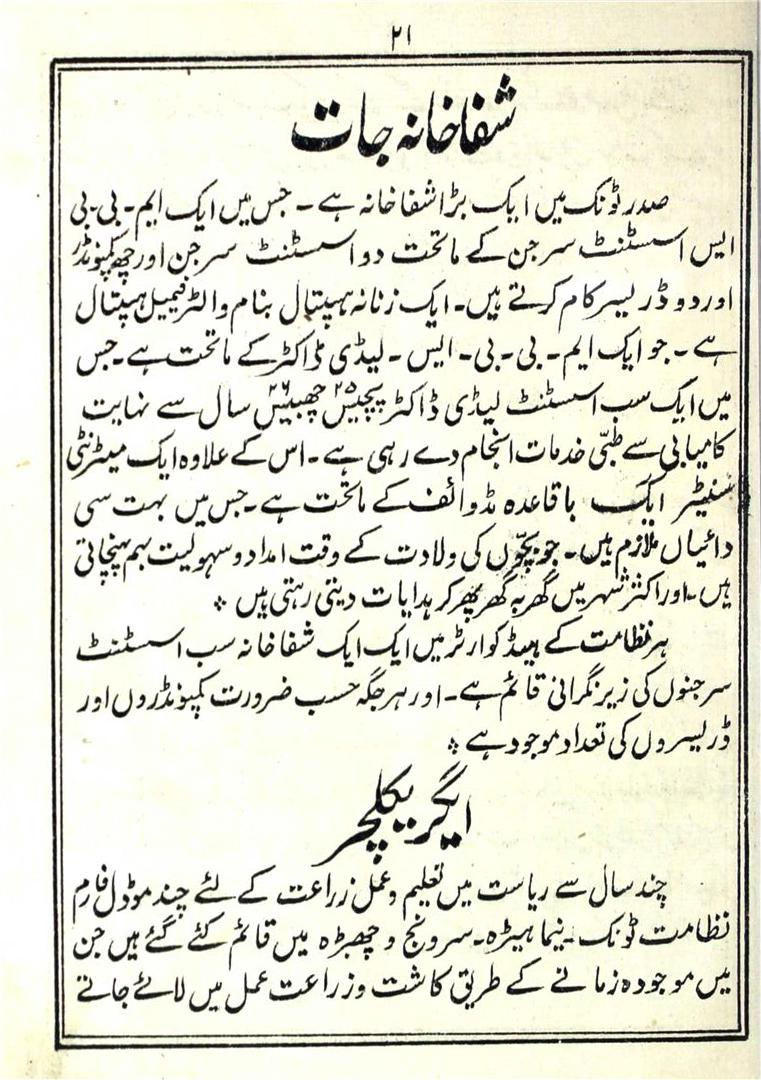 ۲۱
شفاخانہ جات
صدر ٹونک میں ایک بڑا شفاخانہ ہے۔ جس میں ایک ایم۔بی۔بی
ایس اسسٹنٹ سرجن کے ماتحت دو اسسٹنٹ سرجن اور چھ کمپونڈر
اور دو ڈریسر کام کرتے ہیں۔ ایک زنانہ ہسپتال بنام والٹر فیمیل ہسپتال
ہے۔ جو ایک ایم۔بی۔بی۔ایس۔لیڈی ڈاکٹر کے ماتحت ہے۔جس
میں ایک سب اسسٹنٹ لیڈی ڈاکٹر پچیس ۲۵ چھبیس ۲۶ سال سے نہایت
کامیابی سے طبّی خدمات انجام دے رہی ہے۔ اس کے علاوہ ایک میٹرنٹی
سنیٹر ایک باقاعدہ مڈوائف کے ماتحت ہے۔جس میں بہت سی
دائیاں ملازم ہیں۔ جو بچّوں کی ولادت کے وقت امداد و سہولیت بہم پہنچاتی
ہیں۔اور اکثر شہر میں گھر بہ گھر پھر کر ہدایات دیتی رہتی ہیں ٭
ہر نظامت کے ہیڈ کوارٹر میں ایک ایک شفاخانہ سب اسسٹنٹ
سرجنوں کی زیر نگرانی قائم ہے۔ اور ہر جگہ حسب ضرورت کمپونڈروں اور
ڈریسروں کی تعداد موجود ہے ٭
ایگریکلچر
چند سال سے ریاست میں تعلیم و عمل زراعت کے لئے چند موڈل فارم
نظامت ٹونک۔نیماہیڑہ۔سرونج و چھبڑہ میں قائم کئے گئے ہیں جن
میں موجودہ زمانے کے طریق کاشت و زراعت عمل میں لائے جاتے